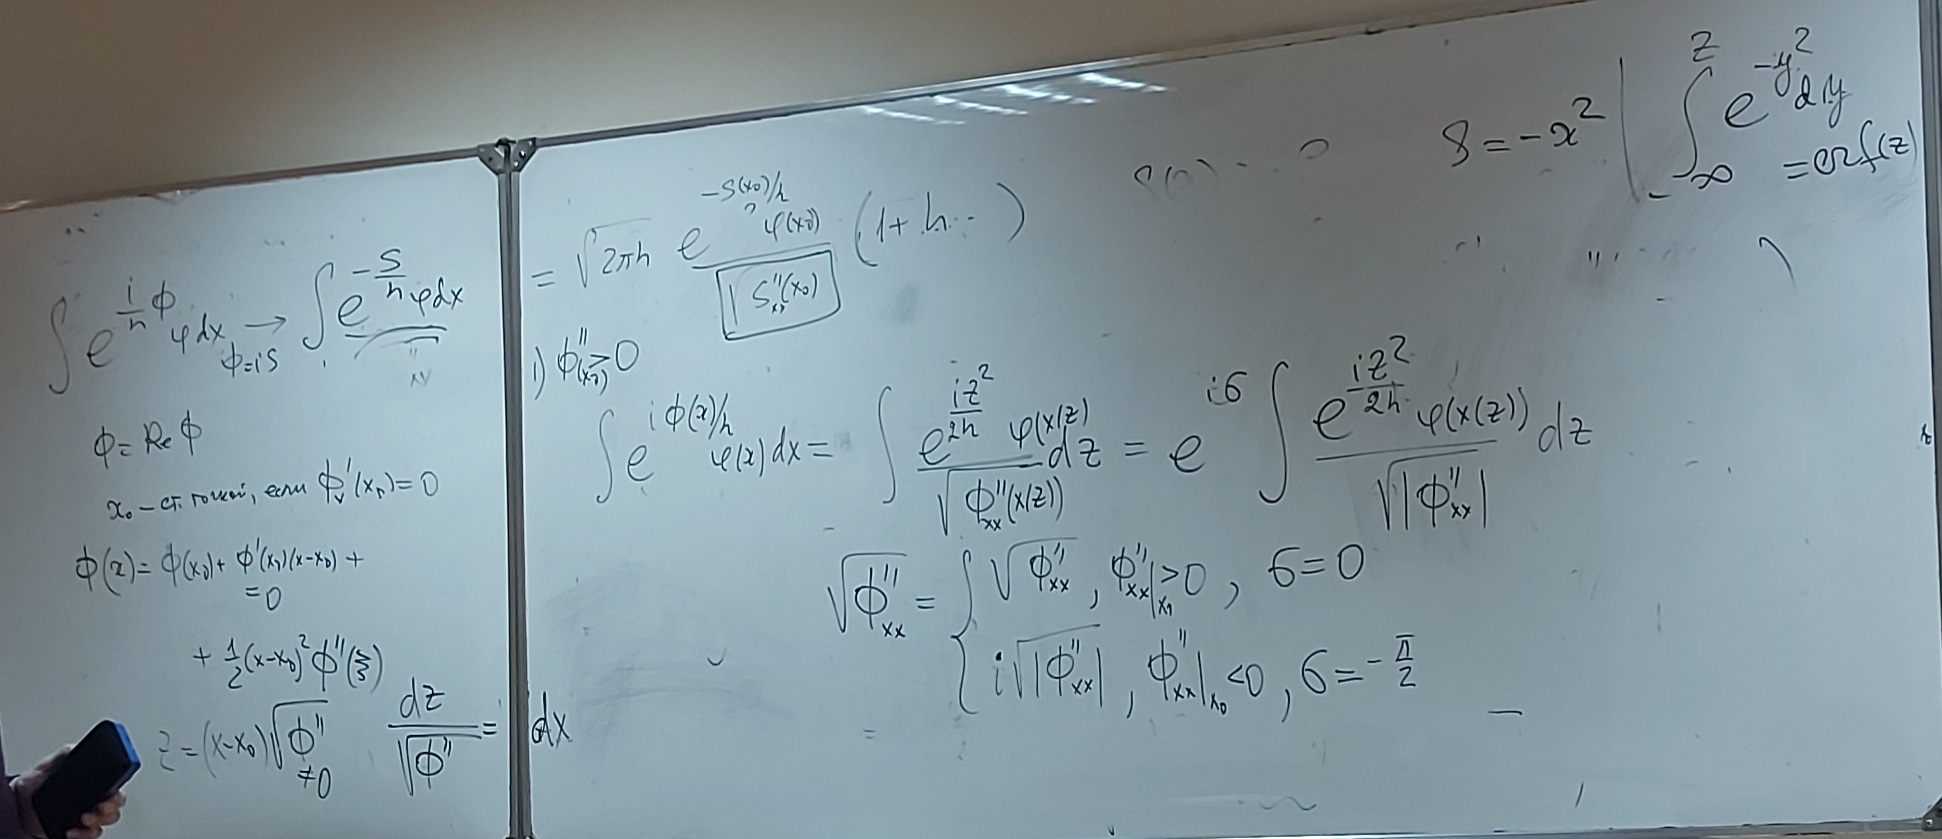 ∫ e^{i/h Φ} φ dx → ∫ e^{-S/h} φ dx
Φ=iS
Φ = Re Φ
x₀ – ст. точкой, если Φ'ₓ(x₀) = 0
Φ(x) = Φ(x₀) + Φ'(x₀)(x-x₀) +
= 0
+ 1/2 (x-x₀)² Φ''(ξ)
z = (x-x₀) √Φ'' dz/√Φ'' = dx
≠0
= √2πh e^{-S(x₀)/h} φ(x₀) / √S''ₓₓ(x₀) (1 + h··)
1) Φ''(x₀) > 0
∫ e^{iΦ(x)/h} φ(x) dx = ∫ e^{iz²/2h} φ(x(z)) / √Φ''ₓₓ(x(z)) dz = e^{iσ} ∫ e^{iz²/2h} φ(x(z)) / √|Φ''ₓₓ| dz
√Φ''ₓₓ = { √Φ''ₓₓ , Φ''ₓₓ|ₓ₀ > 0 , σ = 0
i√|Φ''ₓₓ| , Φ''ₓₓ|ₓ₀ < 0 , σ = -π/2
S = -x² | ∫_{-∞}^{z} e^{-y²} dy
= erf(z)